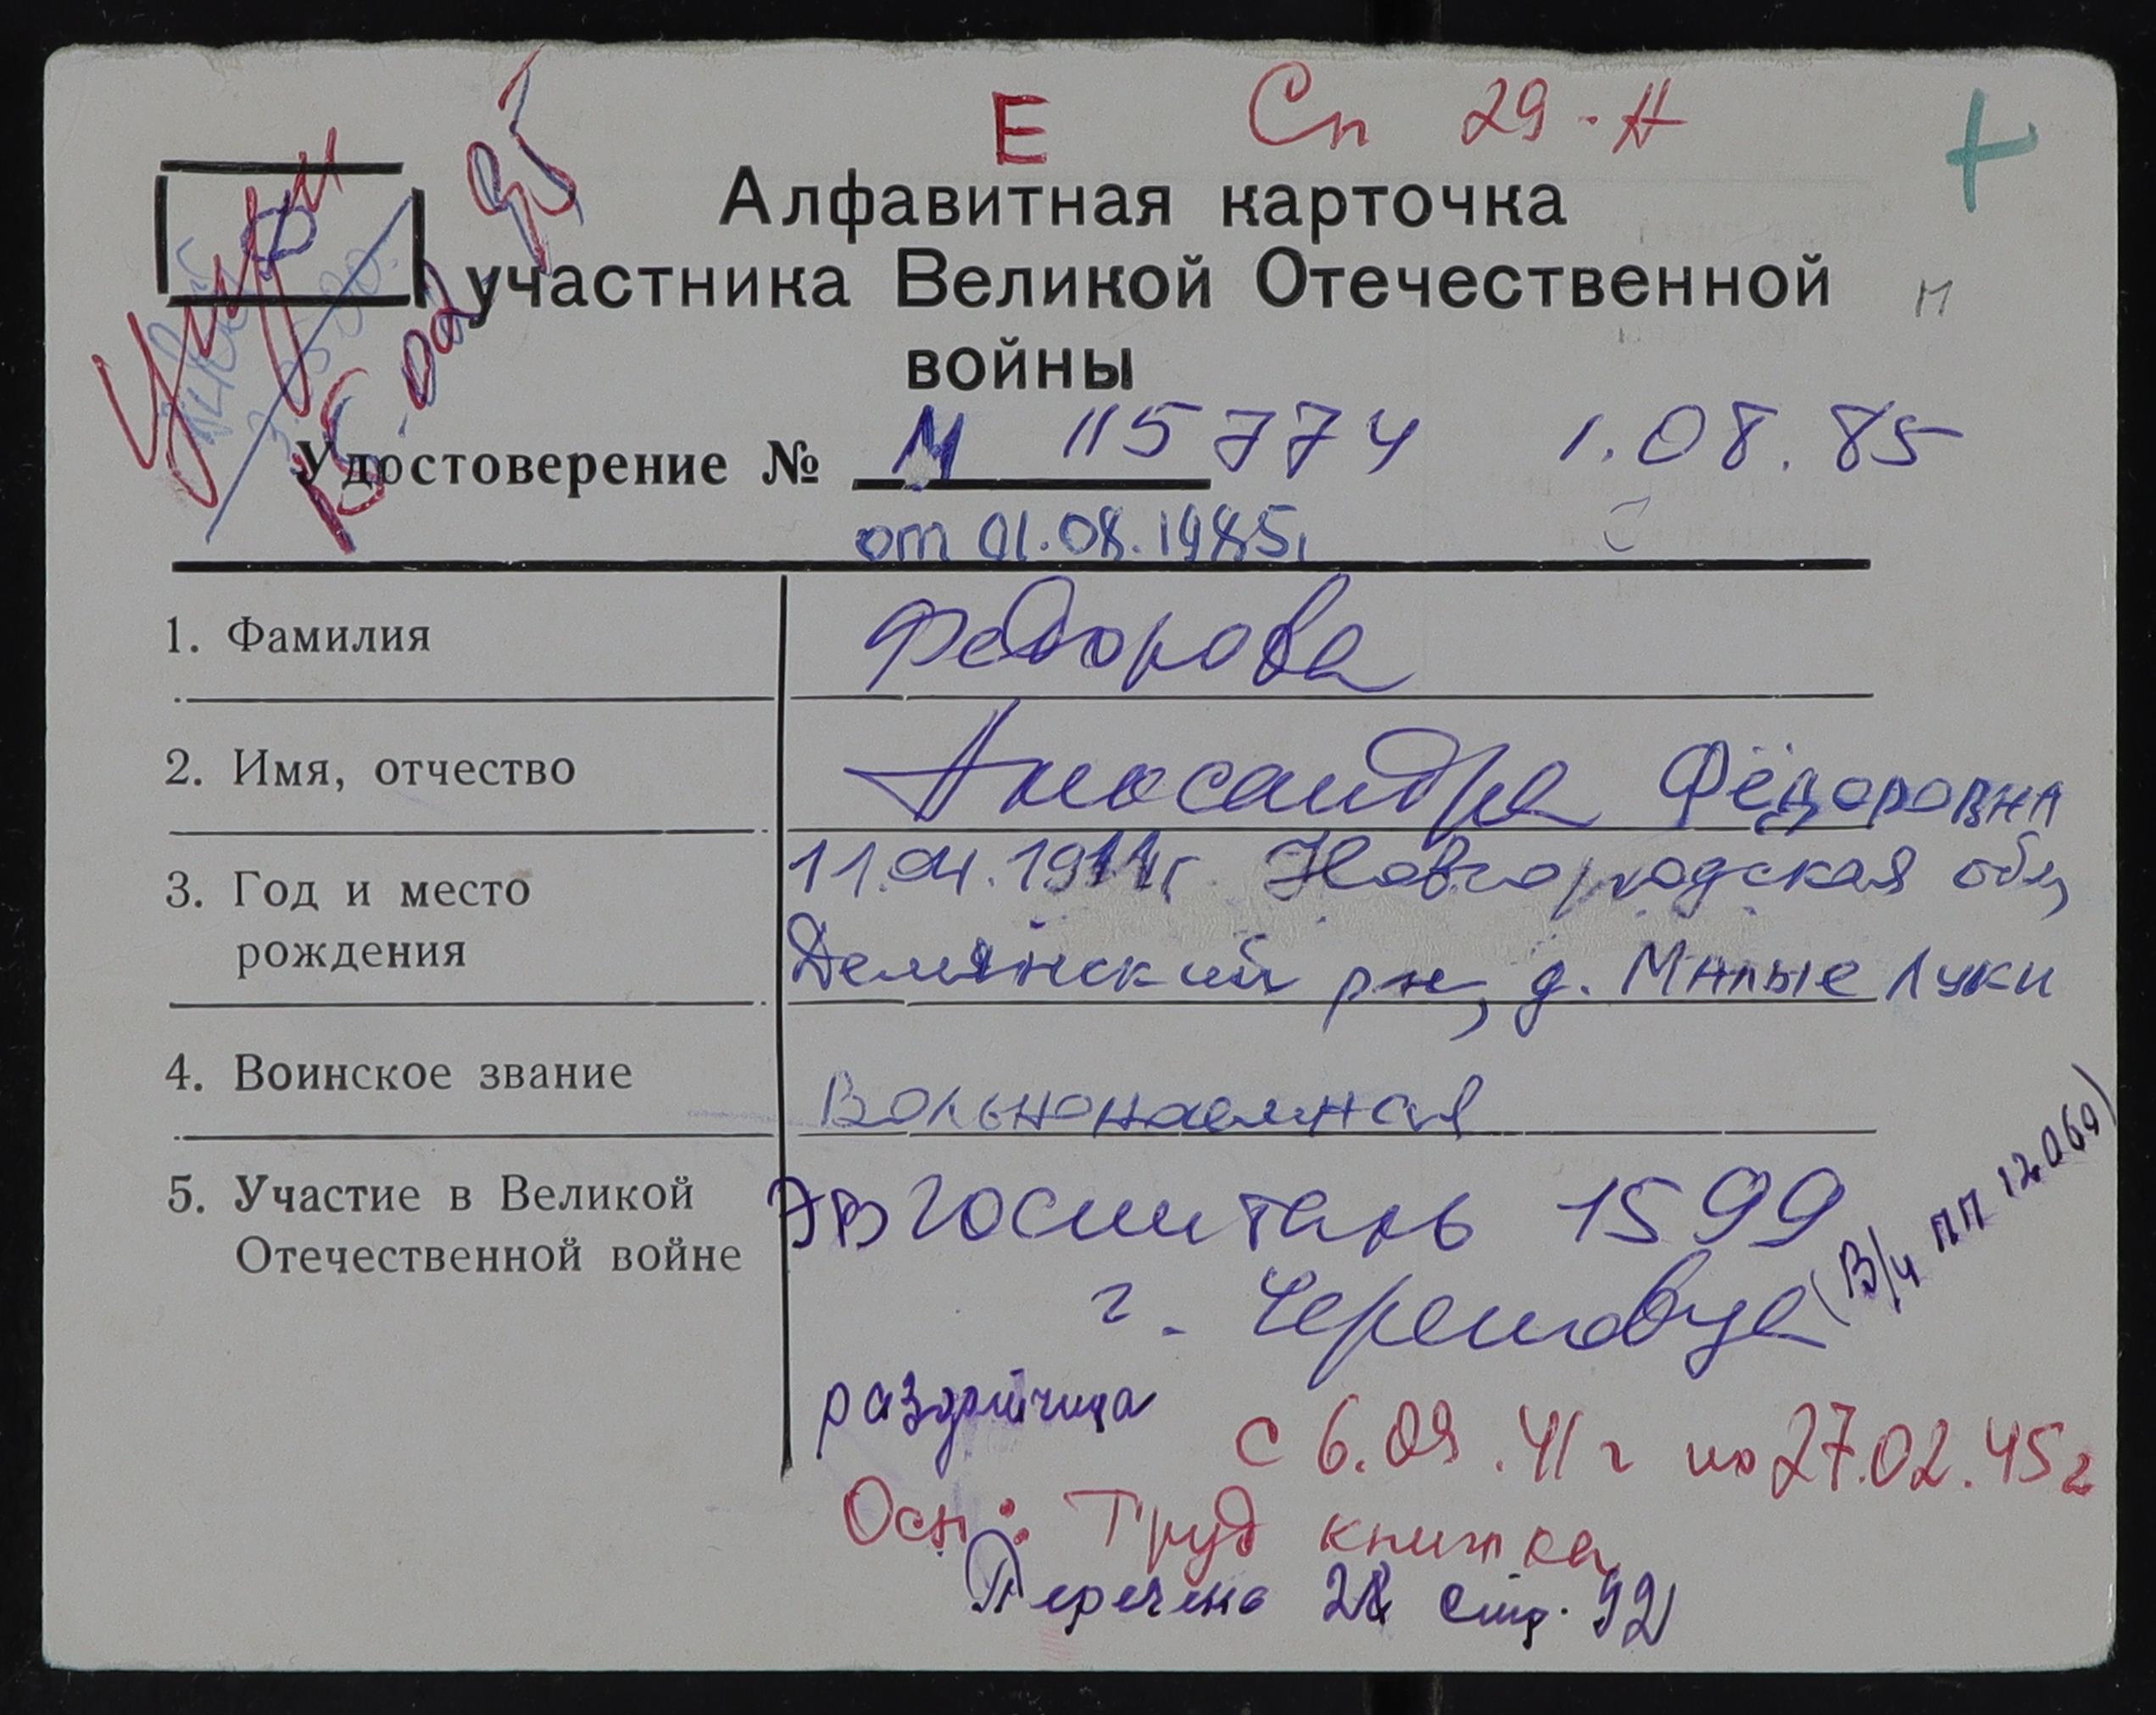 Е Сп 29-Н
Умер
15.02.95
Алфавитная карточка
участника Великой Отечественной
войны
М
Удостоверение № М 115774 1.08.85
от 01.08.1985г
1. Фамилия Федорова
2. Имя, отчество Александра Фёдоровна
3. Год и место рождения 11.04.1911г. Новгородская обл,
Демянский рн, д. Малые Луки
4. Воинское звание Вольнонаемная
5. Участие в Великой Отечественной войне Эвгоспиталь 1599
г. Череповца (В/ч ПП 12069)
раздатчица
с 6.09.41г по 27.02.45г
Осн: Труд книжка
Перечень 28 стр. 92